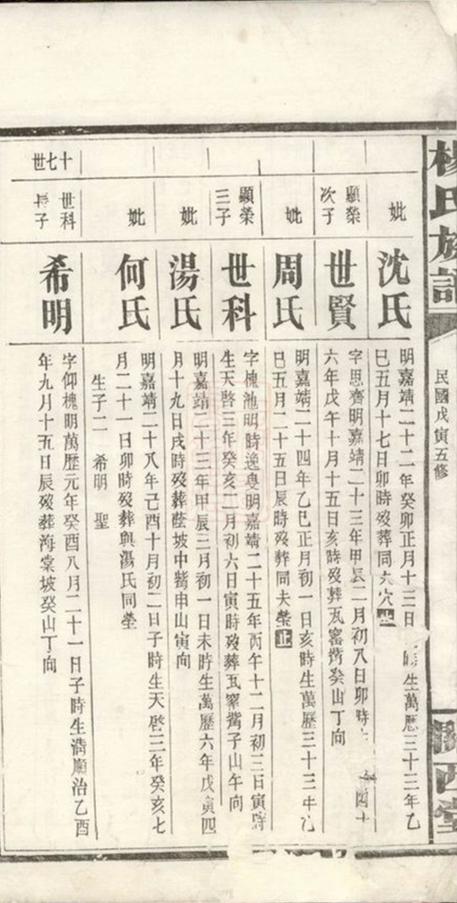 楊氏族譜
民國戊寅五修
關西堂
妣
沈氏
明嘉靖二十二年癸卯正月十三日
時生萬歷三十三年乙
巳五月十七日卯時歿葬同夫穴止
顯榮
次子
世賢
字思齊明嘉靖二十三年甲辰二月初八日卯時
六年戊午十月十五日亥時歿葬瓦窰癸山丁向
妣
周氏
明嘉靖二十四年乙巳正月初一日亥時生萬歷三十三年乙
巳五月二十五日辰時歿葬同夫塋止
顯榮
三子
世科
字槐池明時逸叟明嘉靖二十五年丙午十二月初三日寅時
生天啓三年癸亥二月初六日寅時歿葬瓦窰子山午向
妣
湯氏
明嘉靖二十三年甲辰三月初一日未時生萬歷六年戊寅四
月十九日戌時歿葬蔭坡中嘴申山寅向
妣
何氏
明嘉靖二十八年己酉十月初二日子時生天啓三年癸亥七
月二十一日卯時歿葬與湯氏同塋
生子二 希明 聖
十七世
世科
長子
希明
字仰槐明萬歷元年癸酉八月二十一日子時生清順治乙酉
年九月十五日辰歿葬海棠坡癸山丁向